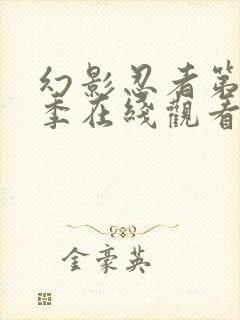 幻影忍者第
季在綫觀看
金豪英